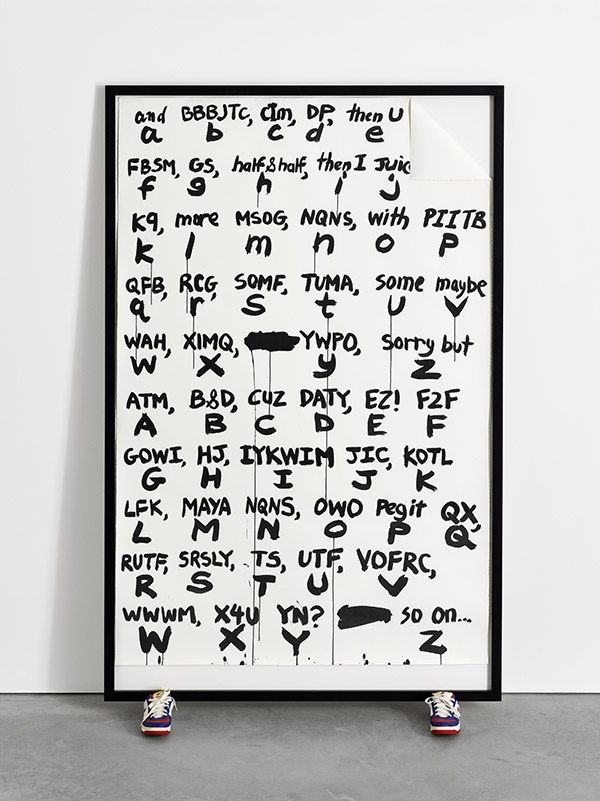 and BBBJTC, CIM, DP, then U
a b c d e
FBSM, GS, half&half, then I Juic
f g h i j
K9, more MSOG, NQNS, with PIITB
k l m n o p
QFB, RCG, SOMF, TUMA, some maybe
q r s t u v
WAH, XIMQ, YWPO, sorry but
w x y z
ATM, B&D, CUZ DATY, EZ! F2F
A B C D E F
GOWI, HJ, IYKWIM JIC, KOTL
G H I J K
LFK, MAYA NQNS, OWO Pegit QX,
L M N O P Q
RUTF, SRSLY, TS, UTF, VOFRC,
R S T U V
WWWM, X4U YN? so on...
W X Y Z